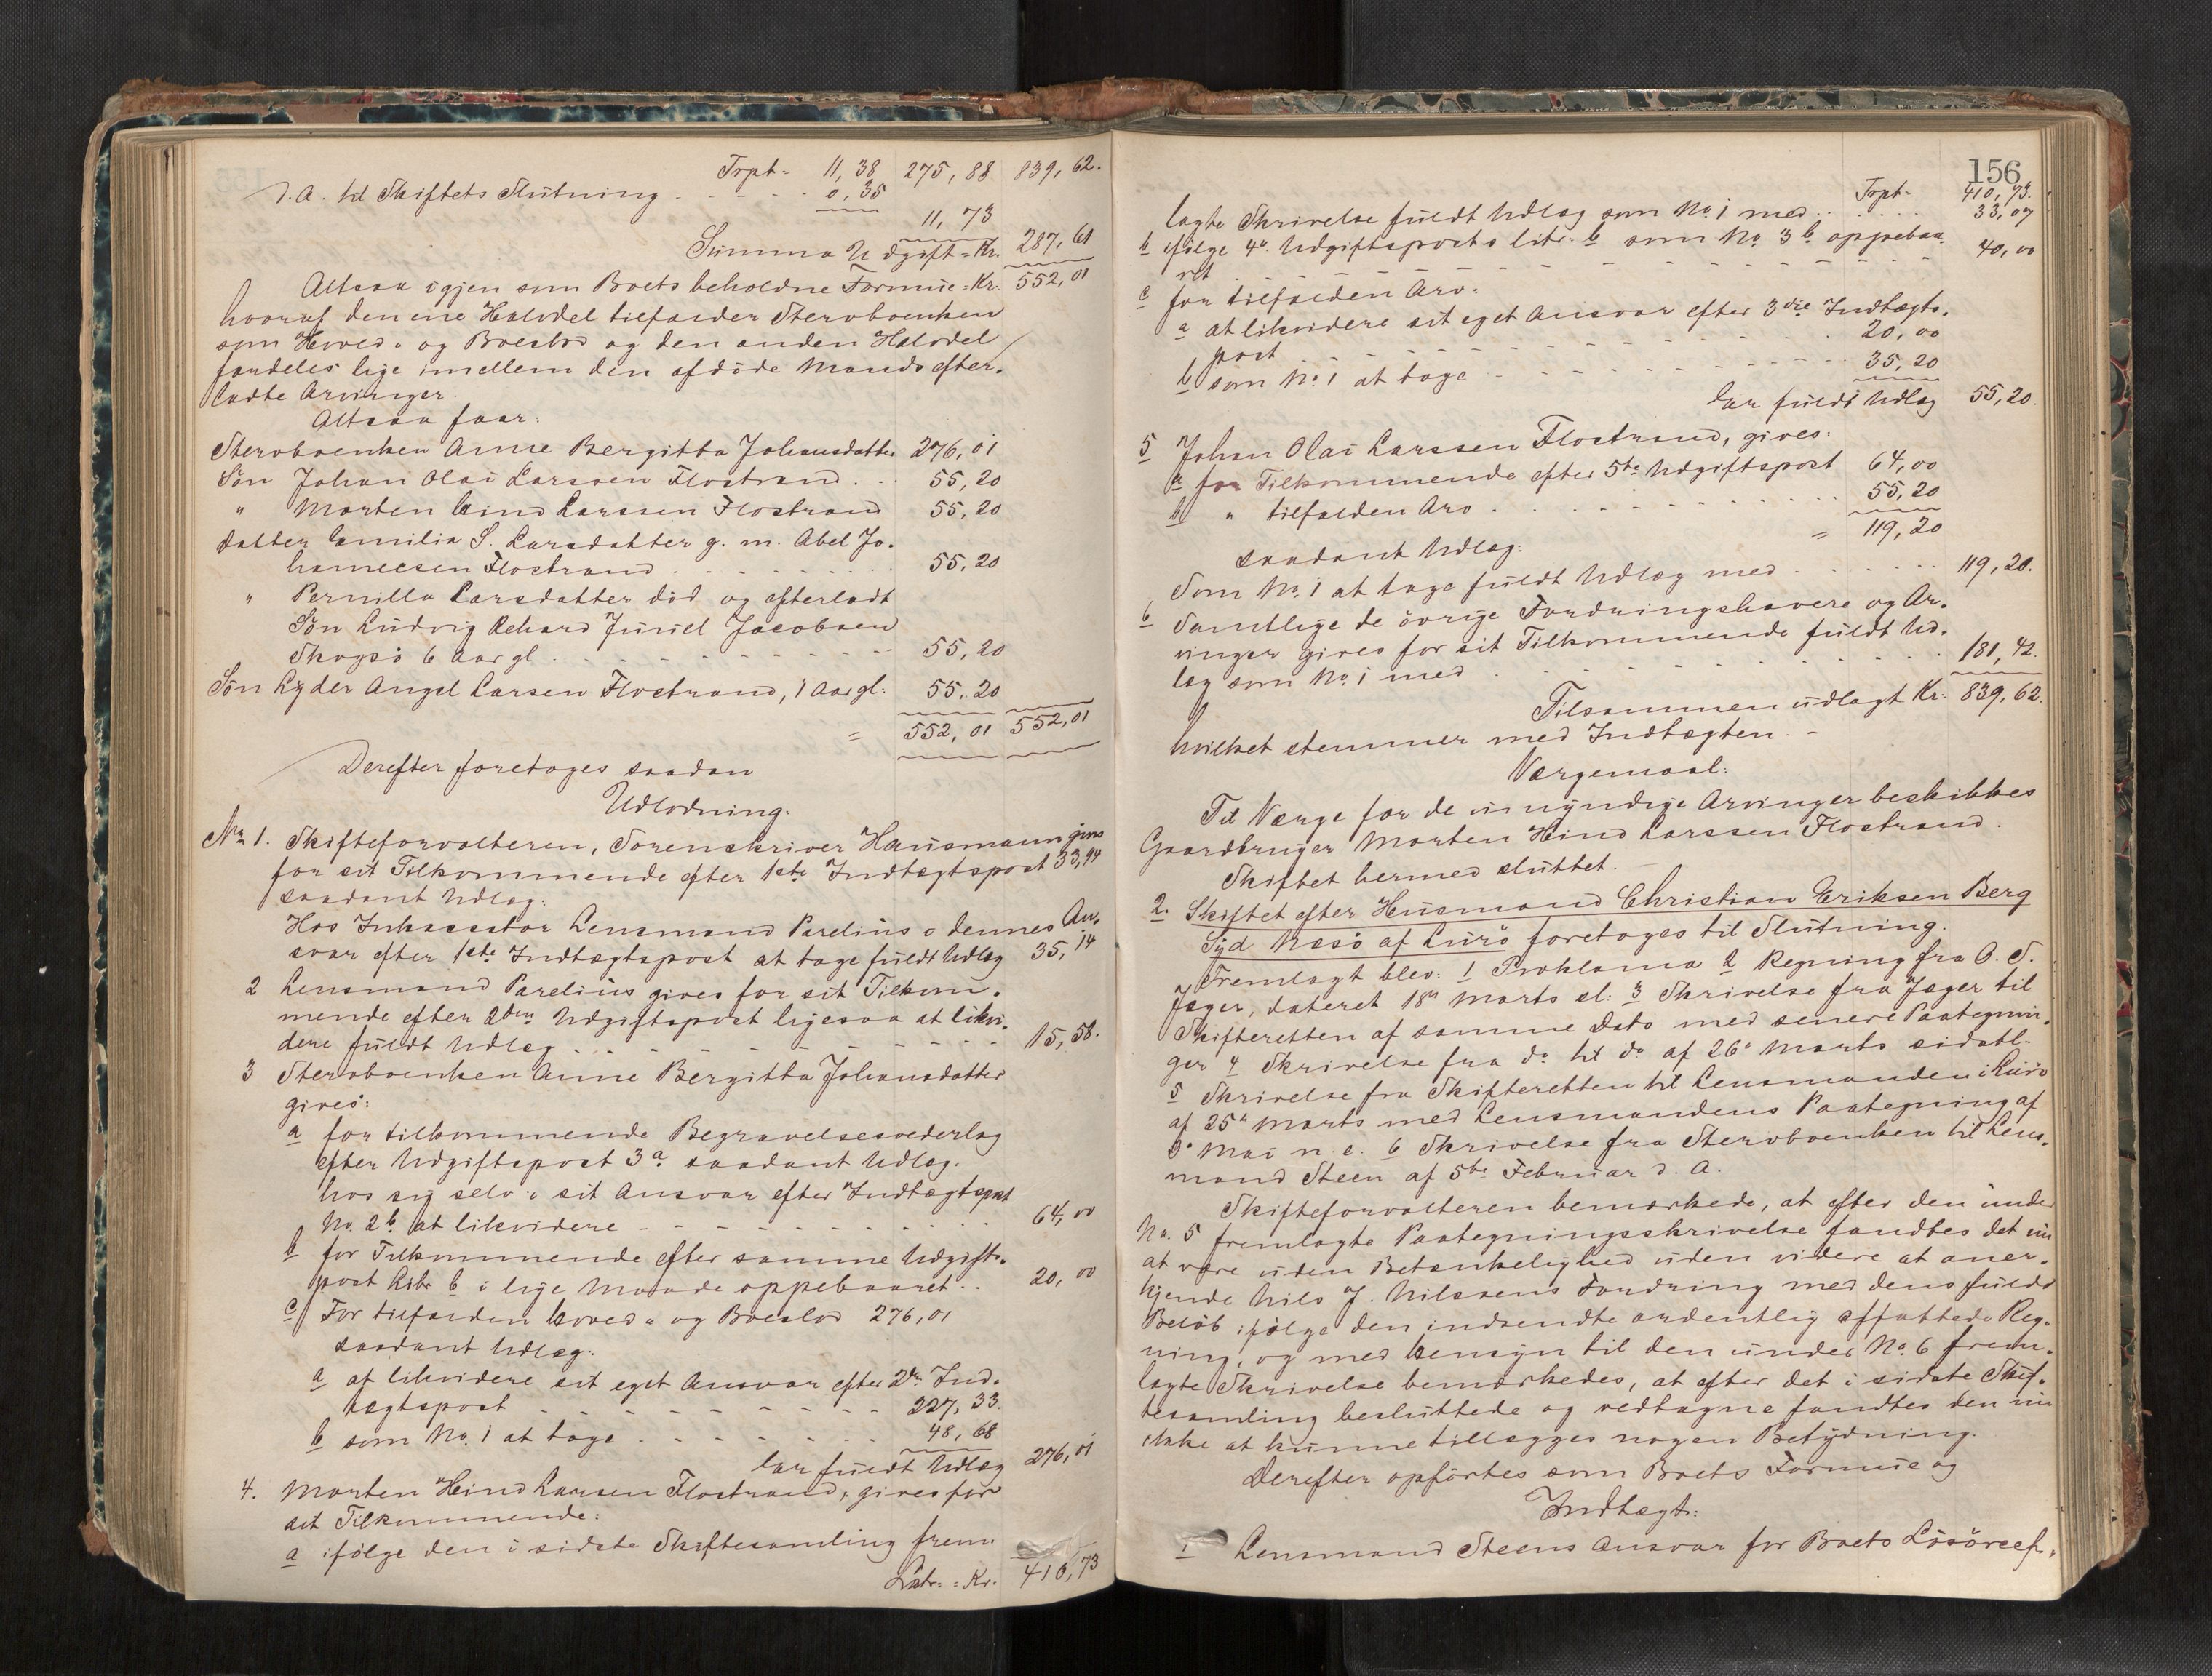 Trpt = 11,38 275,88 839,62.
d. A. til Skiftets Slutning . . . . 0,35
11,73
Summa Udgift = Kr. 287,61
Altsaa igjen som Boets beholdne Formue = Kr. 552,01
hvoraf den ene Halvdel tilfalder Stervboenken
som Hoved- og Boeslod og den anden Halvdel
fordeles lige imellem den afdöde Mands efter-
ladte Arvinger.
Altsaa faar:
Stervboenken Anne Bergitta Johansdatter 276,01
Sön Johan Olai Larssen Flostrand . . 55,20
" Morten Hind Larssen Flostrand 55,20
datter Emilia S. Larsdatter g. m. Abel Jo-
hannessen Flostrand . . . . . . . 55,20
" Pernilla Larsdatter död og efterladt
Sön Ludvig Rehard Juuel Jacobsen
Skogsö 6 Aar gl . . . . . . . . 55,20
Sön Lyder Angel Larsen Flostrand, 1 Aar gl: 55,20
= 552,01 552,01
Derefter foretoges saadan
Udlodning:
No 1. Skifteforvalteren, Sorenskriver Hausmann gives
for sit Tilkommende efter 1ste Indtægtspost 33,94
saadant Udlæg:
Hos Inkassator Lensmand Parelius o dennes An-
svar efter 1ste Indtægtspost at tage fuldt Udlæg 35,14
2 Lensmand Parelius gives for sit Tilkom-
mende efter 2den Udgiftspost ligesaa at likvi-
dere fuldt Udlæg . . . . . . . . . . 15,58.
3 Stervboenken Anne Bergitta Johansdatter
gives:
a for tilkommende Begravelsesvederlag
efter Udgiftspost 3a saadant Udlæg.
hos sig selv i sit Ansvar efter Indtægtspost
No. 2b at likvidere . . . . . . . . . 64,00
b for Tilkommende efter samme Udgifts-
post Litr b i lige Maade oppebaaret . . 20,00
c For tilfalden hoved- og Boeslod 276,01
saadant Udlæg:
a at likvidere sit eget Ansvar efter 2de Ind-
tægtspost . . . . . . . . . 227,33.
b som No. 1 at tage . . . . . . 48,68
har fuldt Udlæg 276,01
4. Morten Hind Larsen Flostrand, gives for
sit Tilkommende:
a ifölge den i sidste Skiftesamling frem-
Latr. = Kr. 410,73
156
Trpt = 410,73.
lagte Skrivelse fuldt Udlæg som No. 1 med . . . . . 33,07
b ifölge 4de Udgiftsposts litr. b som No. 3b oppebaa-
ret . . . . . . . . . . . . 40,00
c for tilfalden Arv:
a at likvidere sit eget Ansvar efter 3die Indtægts-
post . . . . . . . . . . . 20,00
b som No. 1 at tage . . . . . . . . 35,20
har fuldt Udlæg 55,20.
5 Johan Olai Larssen Flostrand, gives:
a for Tilkommende efter 5te Udgiftspost 64,00
b " tilfalden Arv . . . . . . . . 55,20
= 119,20
saadant Udlæg:
Som No. 1 at tage fuldt Udlæg med . . . . . 119,20.
6 Samtlige de övrige Fordringshavere og Ar-
vinger gives for sit Tilkommende fuldt Ud-
læg som No. 1 med . . . . . . . . . 181,42.
Tilsammen udlagt Kr. 839,62.
hvilket stemmer med Indtægten. -
Værgemaal:
Til Værge for de umyndige Arvinger beskikkes
Gaardbruger Morten Hind Larssen Flostrand.
Skiftet hermed sluttet.
2. Skiftet efter Husmand Christian Eriksen Berg
Syd Næsö af Lurö foretages til Slutning.
Fremlagt blev: 1 Proklama 2 Regning fra O. S.
Jæger, dateret 18de Marts sl: 3 Skrivelse fra Jæger til
Skifteretten af samme Dato med senere Paategnin-
ger 4 Skrivelse fra do til do af 26de Marts sidstl:
5 Skrivelse fra Skifteretten til Lensmanden i Lurö
af 25de Marts med Lensmandens Paategning af
Mai n. e. 6 Skrivelse fra Stervboenken til Lens-
mand Steen af 5te Februar d. A.
Skifteforvalteren bemærkede, at efter den under
No. 5 fremlagte Paategningsskrivelse fandtes det nu
at være uden Betænkelighed uden videre at aner-
kjende Nils J. Nilssens Fordring med dens fulde
Belöb ifölge den indsendte ordentlig affattede Reg-
ning, og med hensyn til den under No. 6 frem-
lagte Skrivelse bemærkedes, at efter det i sidste Skif-
tesamling besluttede og vedtagne fandtes den nu
ikke at kunne tillægges nogen Betydning.
Derefter opförtes som Boets Formue og
Indtægt:
1 Lensmand Steens Ansvar for Boets Lösöreef-